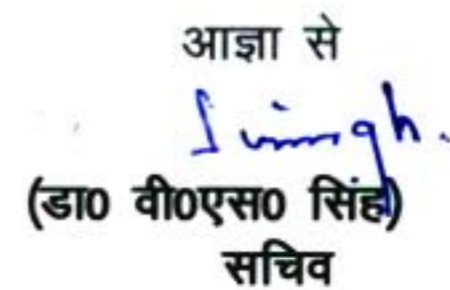 आज्ञा से
Singh.
(डा0 वी0एस0 सिंह)
सचिव